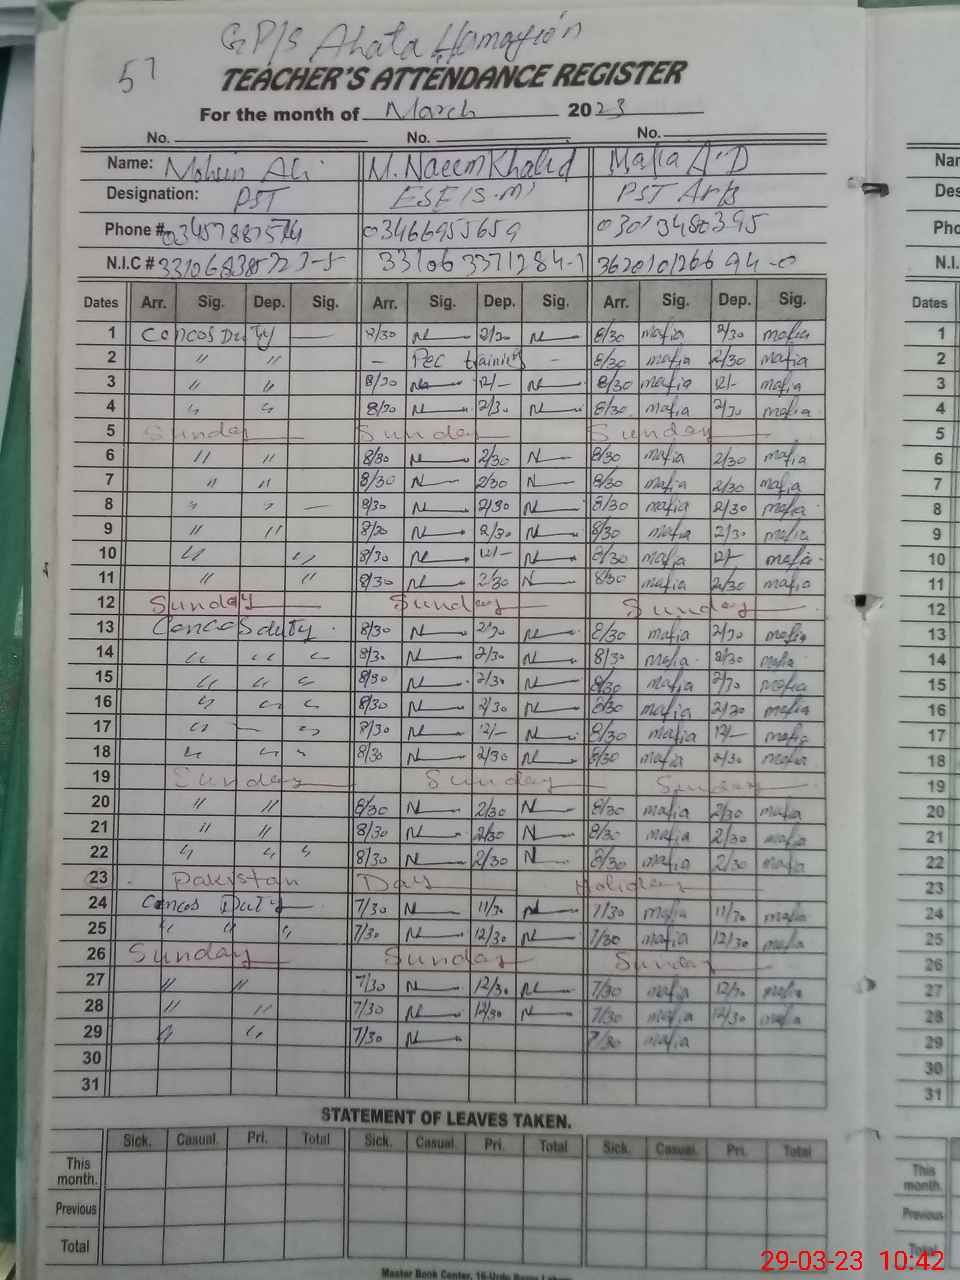 GP/S Ahata Hamayion
57
TEACHER'S ATTENDANCE REGISTER
For the month of March 2023
No. No. No.
Name: Mohsin Ali M. Naeem Khalid Mafia A.D
Designation: PST ESE (S.M) PST Arts
Phone # 03466955659 03013480395
N.I.C #
Dates Arr. Sig. Dep. Sig. Arr. Sig. Dep. Sig. Arr. Sig. Dep. Sig.
1 Concos Duty 8/30 2/30 8/30 mafia 2/30 mafia
2 〃 〃 - Pec training - 8/30 mafia 2/30 mafia
3 〃 〃 8/30 12/- 8/30 mafia 12/- mafia
4 〃 〃 8/30 2/30 8/30 mafia 2/30 mafia
5 Sunday Sunday Sunday
6 〃 〃 8/30 2/30 8/30 mafia 2/30 mafia
7 〃 〃 8/30 2/30 8/30 mafia 2/30 mafia
8 〃 〃 8/30 2/30 8/30 mafia 2/30 mafia
9 〃 〃 8/30 2/30 8/30 mafia 2/30 mafia
10 〃 〃 8/30 12/- 8/30 mafia 12/- mafia
11 〃 〃 8/30 2/30 8/30 mafia 2/30 mafia
12 Sunday Sunday Sunday
13 Concos duty 8/30 2/30 8/30 mafia 2/30 mafia
14 〃 〃 〃 8/30 2/30 8/30 mafia 2/30 mafia
15 〃 〃 〃 8/30 2/30 8/30 mafia 2/30 mafia
16 〃 〃 〃 8/30 2/30 8/30 mafia 2/30 mafia
17 〃 〃 8/30 12/- 8/30 mafia 12/- mafia
18 〃 〃 〃 8/30 2/30 8/30 mafia 2/30 mafia
19 Sunday Sunday Sunday
20 〃 〃 8/30 2/30 8/30 mafia 2/30 mafia
21 〃 〃 8/30 2/30 8/30 mafia 2/30 mafia
22 〃 〃 〃 8/30 2/30 8/30 mafia 2/30 mafia
23 Pakistan Day Holiday
24 Concos Duty 7/30 11/30 7/30 mafia 11/30 mafia
25 〃 〃 〃 7/30 12/30 7/30 mafia 12/30 mafia
26 Sunday Sunday Sunday
27 〃 〃 7/30 12/30 7/30 mafia 12/30 mafia
28 〃 〃 7/30 12/30 7/30 mafia 12/30 mafia
29 〃 〃 7/30 7/30 mafia
30
31
STATEMENT OF LEAVES TAKEN.
Sick. Casual. Pri. Total Sick. Casual. Pri. Total Sick. Casual. Pri. Total
This month.
Previous
Total
Master Book Center, 16-Urdu
Dates
1
2
3
4
5
6
7
8
9
10
11
12
13
14
15
16
17
18
19
20
21
22
23
24
25
26
27
28
29
30
31
This month.
Previous
Total
29-03-23 10:42